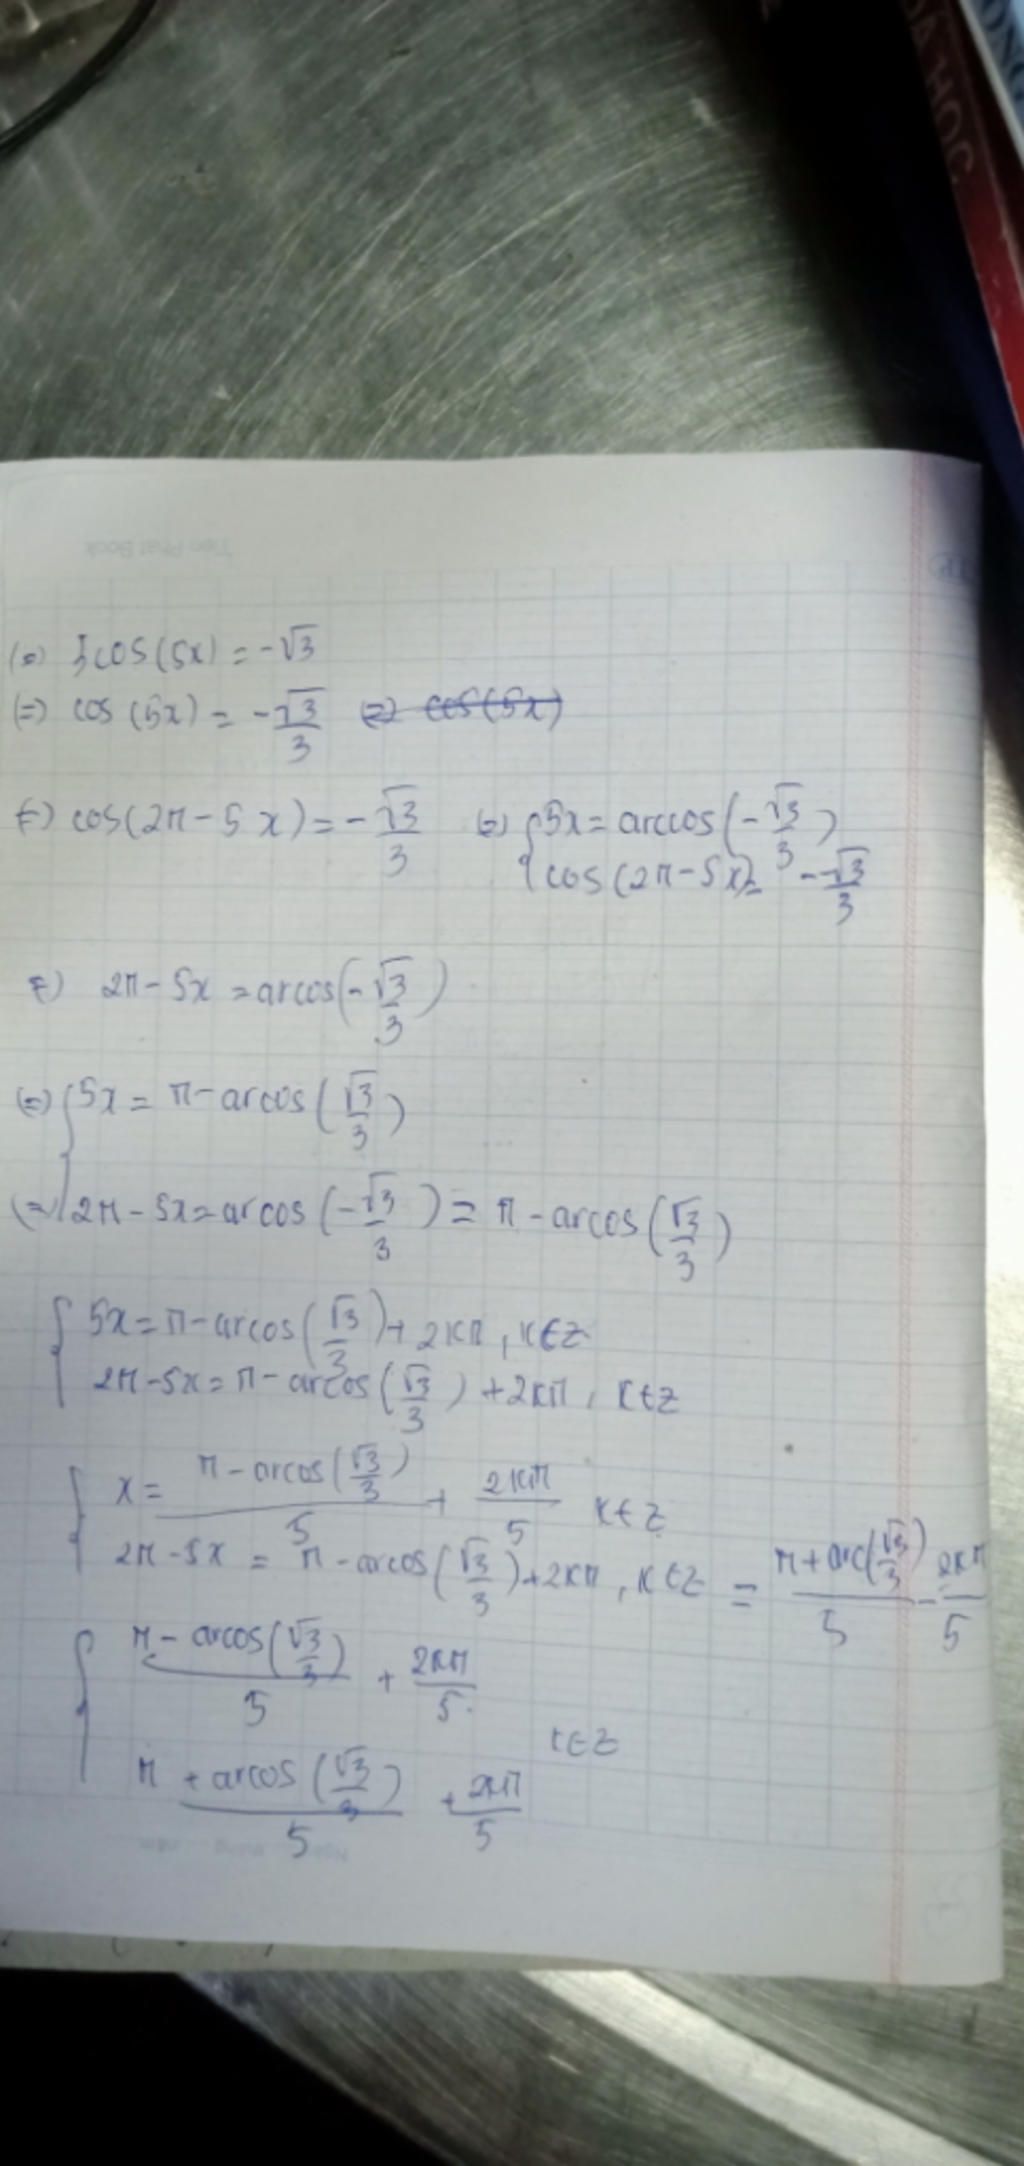 ONG
HOÁ HỌC
Tien Phat Book
(=) 3cos(5x) = -√3
(=) cos (5x) = -√3/3 (=) cos(5x)
(=) cos(2π - 5x) = -√3/3 (=) { 5x = arccos(-√3/3)
cos(2π - 5x) = -√3/3
(=) 2π - 5x = arcos(-√3/3)
(=) { 5x = π - arcos(√3/3)
(=) 2π - 5x = arcos(-√3/3) = π - arcos(√3/3)
{ 5x = π - arcos(√3/3) + 2kπ, k∈Z
2π - 5x = π - arcos(√3/3) + 2kπ, k∈Z
{ x = (π - arcos(√3/3))/5 + 2kπ/5 k∈Z
2π - 5x = π - arcos(√3/3) + 2kπ, k∈Z = (π + arc(√3/3))/5 - 2kπ/5
{ (π - arcos(√3/3))/5 + 2kπ/5
k∈Z
(π + arcos(√3/3))/5 + 2kπ/5